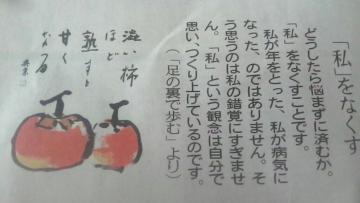 「私」をなくす
どうしたら悩まずに済むか。
「私」をなくすことです。
私が年をとった、私が病気に
なった、のではありません。そ
う思うのは私の錯覚にすぎませ
ん。「私」という観念は自分で
思い、つくり上げているのです。
（「足の裏で歩む」より）
渋い柿
ほど
熟すと
甘く
なる